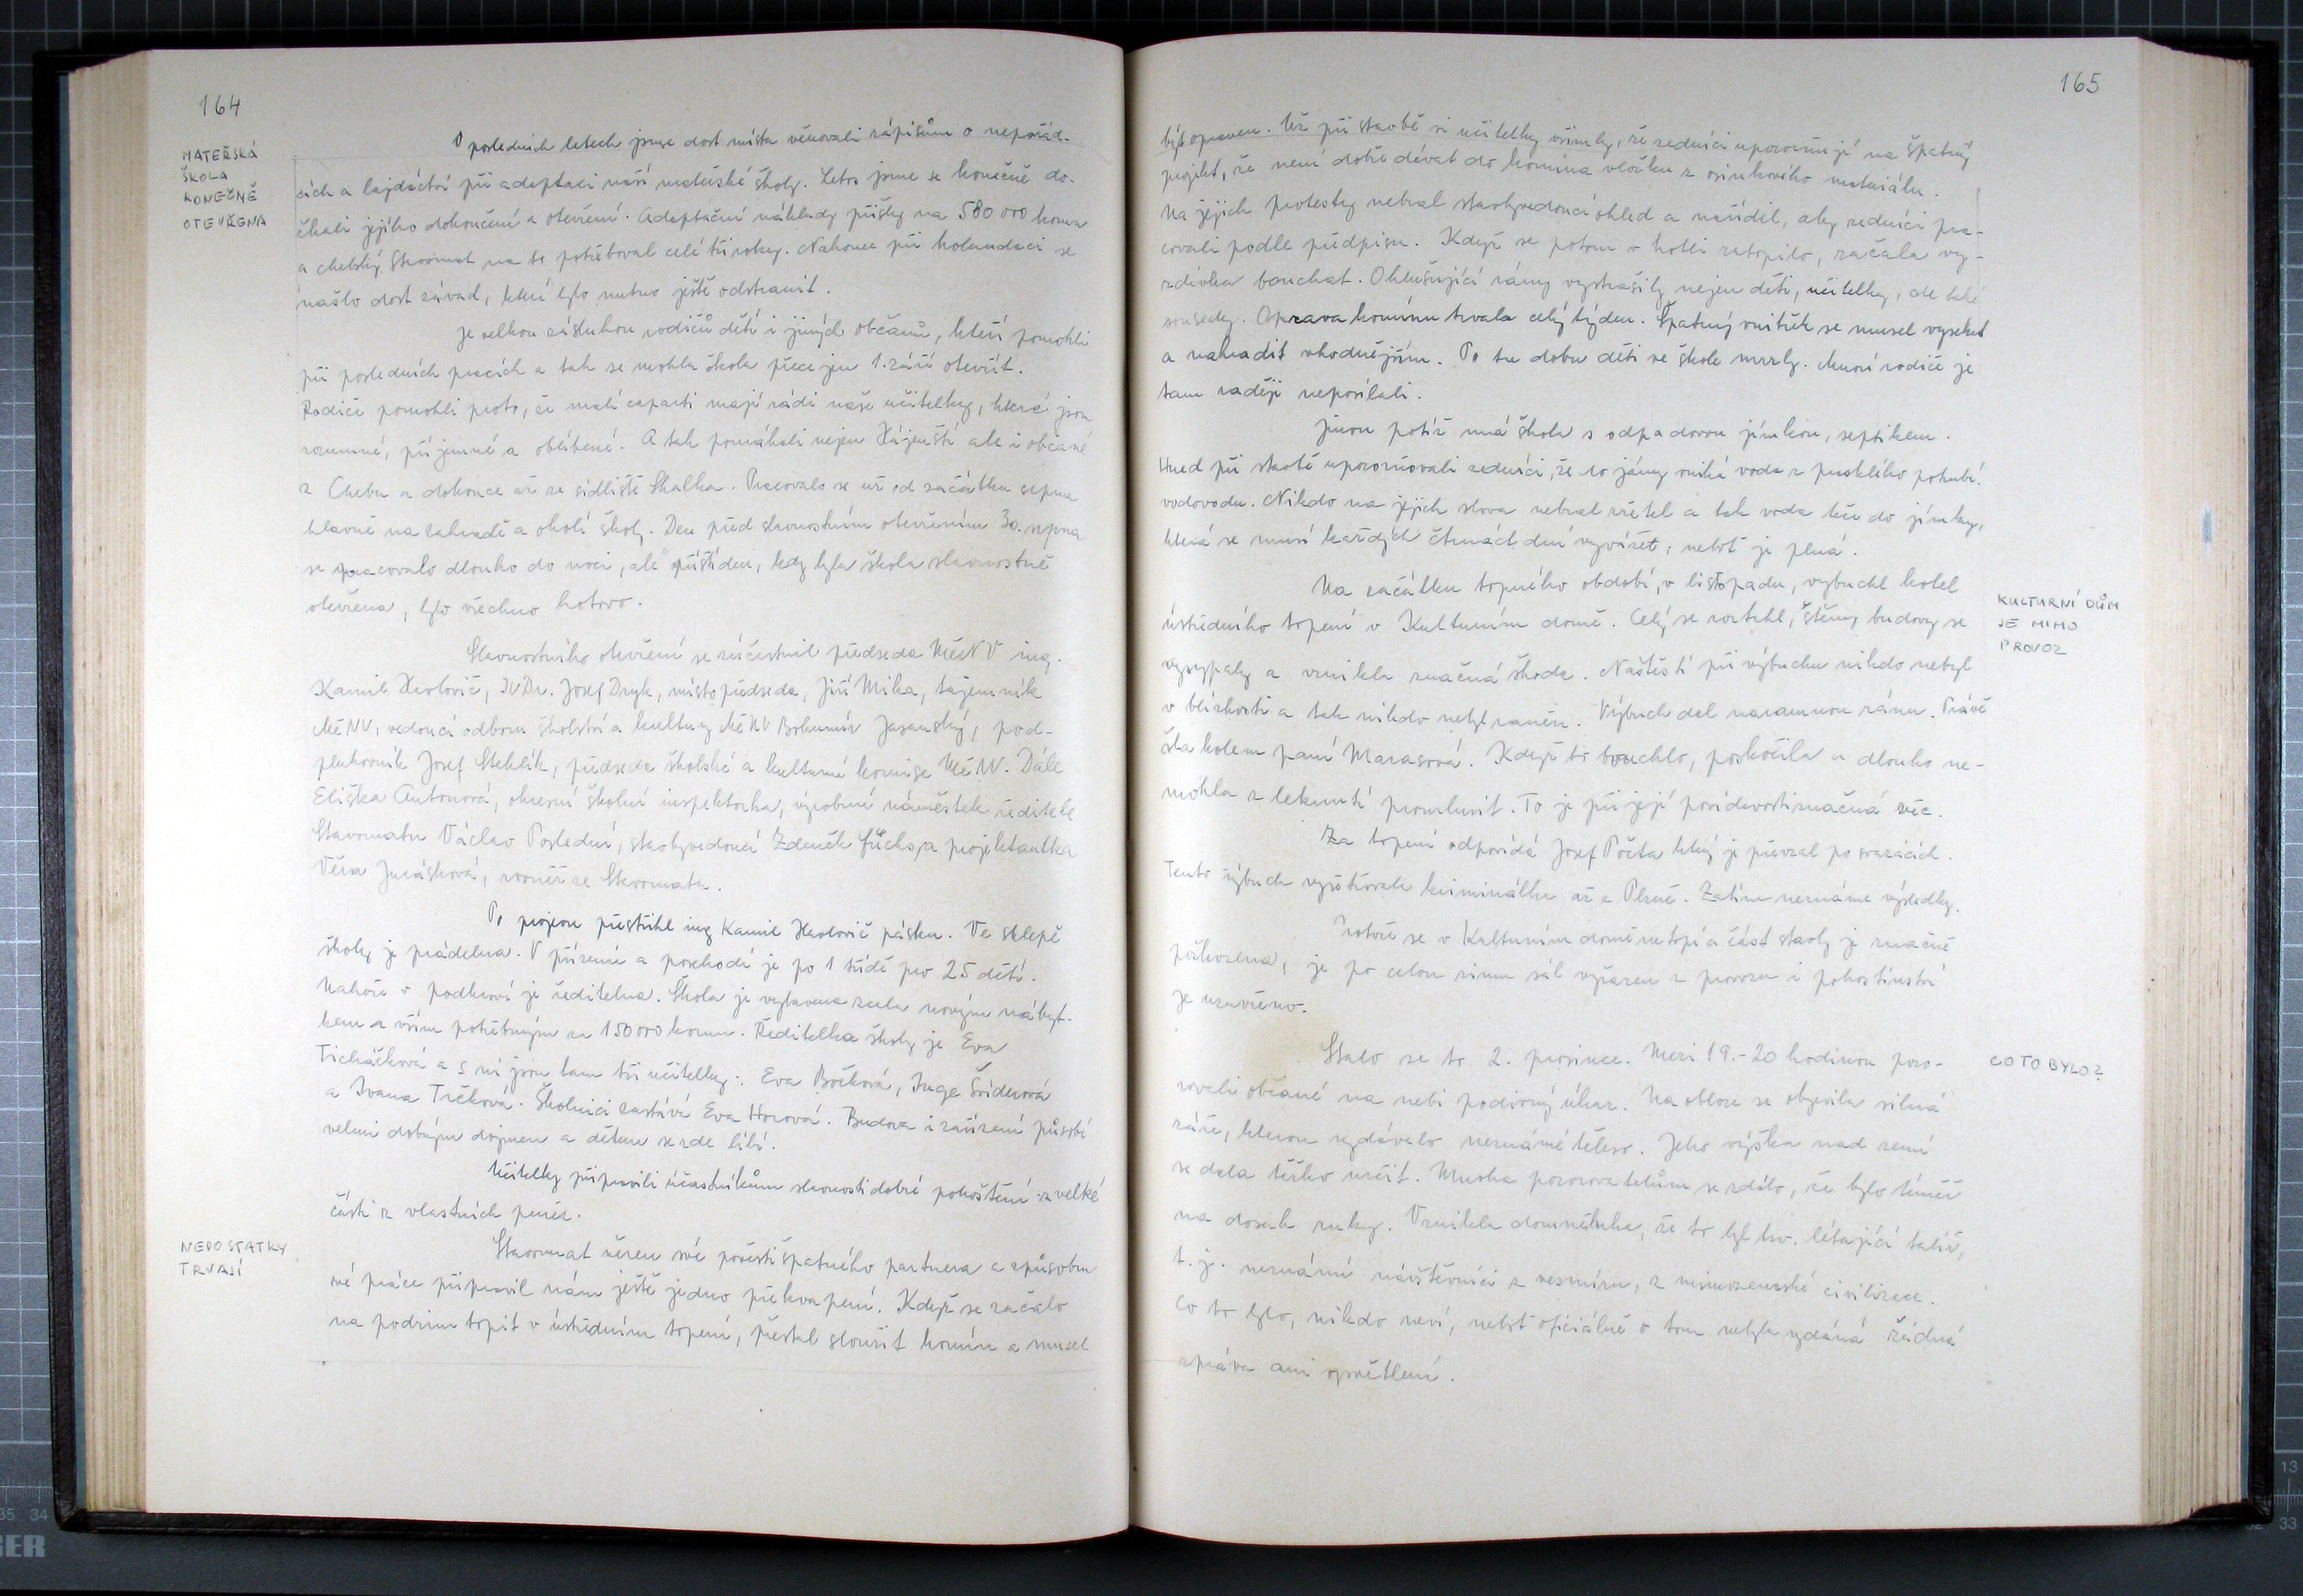 164
MATEŘSKÁ
ŠKOLA
KONEČNĚ
OTEVŘENA
V posledních letech jsme dost místa věnovali zápisům o nepořád-
cích a lajdáctví při adaptaci naší mateřské školy. Letos jsme se konečně do-
čkali jejího dokončení a otevření. Adaptační náklady přišly na 580 000 korun
a chebský Stavomat na to potřeboval celé tři roky. Nakonec při kolaudaci se
našlo dost závad, které bylo nutno ještě odstranit.
Je velkou zásluhou rodičů dětí i jiných občanů, kteří pomohli
při posledních pracích a tak se mohla škola přece jen 1. září otevřít.
Rodiče pomohli proto, že malí caparti mají rádi naše učitelky, které jsou
rozumné, příjemné a oblíbené. A tak pomáhali nejen Hájenští ale i občané
z Chebu a dokonce až ze sídliště Skalka. Pracovalo se už od začátku srpna
hlavně na zahradě a okolí školy. Den před slavnostním otevřením 30. srpna
se pracovalo dlouho do noci, ale příští den, kdy byla škola slavnostně
otevřena, bylo všechno hotovo.
Slavnostního otevření se zúčastnil předseda MěNV ing.
Kamil Havlovič, JUDr. Josef Dryk, místopředseda, Jiří Mika, tajemník
MěNV, vedoucí odboru školství a kultury MěNV Bohumír Jasanský, pod-
plukovník Josef Stehlík, předseda školské a kulturní komise MěNV. Dále
Eliška Antonová, okresní školní inspektorka, výrobní náměstek ředitele
Stavomatu Václav Poslední, stavbyvedoucí Zdeněk Füchs, a projektantka
Věra Jurásková, rovněž ze Stavomatu.
Po projevu přestřihl ing Kamil Havlovič pásku. Ve sklepě
školy je prádelna. V přízemí a poschodí je po 1 třídě pro 25 dětí.
Nahoře v podkroví je ředitelna. Škola je vybavena zcela novým nábyt-
kem a vším potřebným za 150 000 korun. Ředitelka školy je Eva
Ticháčková a s ní jsou tam tři učitelky: Eva Bočková, Inge Šnidrová
a Ivana Trčková. Školnici zastává Eva Horová. Budova i zařízení působí
velmi dobrým dojmem a dětem se zde líbí.
Učitelky připravili účastníkům slavnosti dobré pohoštění z velké
části z vlastních peněz.
NEDOSTATKY
TRVAJÍ
Stavomat věren své pověsti špatného partnera a způsobu
své práce připravil nám ještě jedno překvapení. Když se začalo
na podzim topit v ústředním topení, přestal sloužit komín a musel
165
být opraven. Už při stavbě si učitelky všimly, že zedníci upozorňují na špatný
projekt, že není dobře dávat do komína vložku z osinkového materiálu.
Na jejich protesty nebral stavbyvedoucí ohled a nařídil, aby zedníci pra-
covali podle předpisu. Když se potom v kotli zatopilo, začala vy-
zdívka bouchat. Ohlušující rány vystrašily nejen děti, učitelky, ale také
sousedy. Oprava komínu trvala celý týden. Špatný vnitřek se musel vysekat
a nahradit vhodnějším. Po tu dobu děti ve škole mrzly. Mnozí rodiče je
tam raději neposílali.
Jinou potíž má škola s odpadovou jímkou, septikem.
Hned při stavbě upozorňovali zedníci, že do jámy vniká voda z prasklého potrubí
vodovodu. Nikdo na jejich slova nebral zřetel a tak voda teče do jímky,
která se musí každých čtrnáct dní vyvážet, neboť je plná.
KULTURNÍ DŮM
JE MIMO
PROVOZ
Na začátku topného období, v listopadu, vybuchl kotel
ústředního topení v Kulturním domě. Celý se roztrhl, stěny budovy se
vysypaly a vznikla značná škoda. Naštěstí při výbuchu nikdo nebyl
v blízkosti a tak nikdo nebyl raněn. Výbuch dal naramnou ránu. Právě
šla kolem paní Marasová. Když to bouchlo, poskočila a dlouho ne-
mohla z leknutí promluvit. To je při její povídavosti značná věc.
Za topení odpovídá Josef Počta který je převzal po svazácích.
Tento výbuch vyšetřovala kriminálka až z Plzně. Zatím neznáme výsledky.
Protože se v Kulturním domě netopí a část stavby je značně
poškozena, je po celou zimu sál vyřazen z provozu i pohostinství
je uzavřeno.
CO TO BYLO?
Stalo se to 2. prosince. Mezi 19.-20 hodinou pozo-
rovali občané na nebi podivný úkaz. Na obloze se objevila silná
záře, kterou vydávalo neznámé těleso. Jeho výška nad zemí
se dala těžko určit. Mnoha pozorovatelům se zdálo, že bylo téměř
na dosah ruky. Vznikla domněnka, že to byl tzv. létající talíř,
t. j. neznámí návštěvníci z vesmíru, z mimozemské civilizace.
Co to bylo, nikdo neví, neboť oficiálně o tom nebyla vydána žádná
zpráva ani vysvětlení.